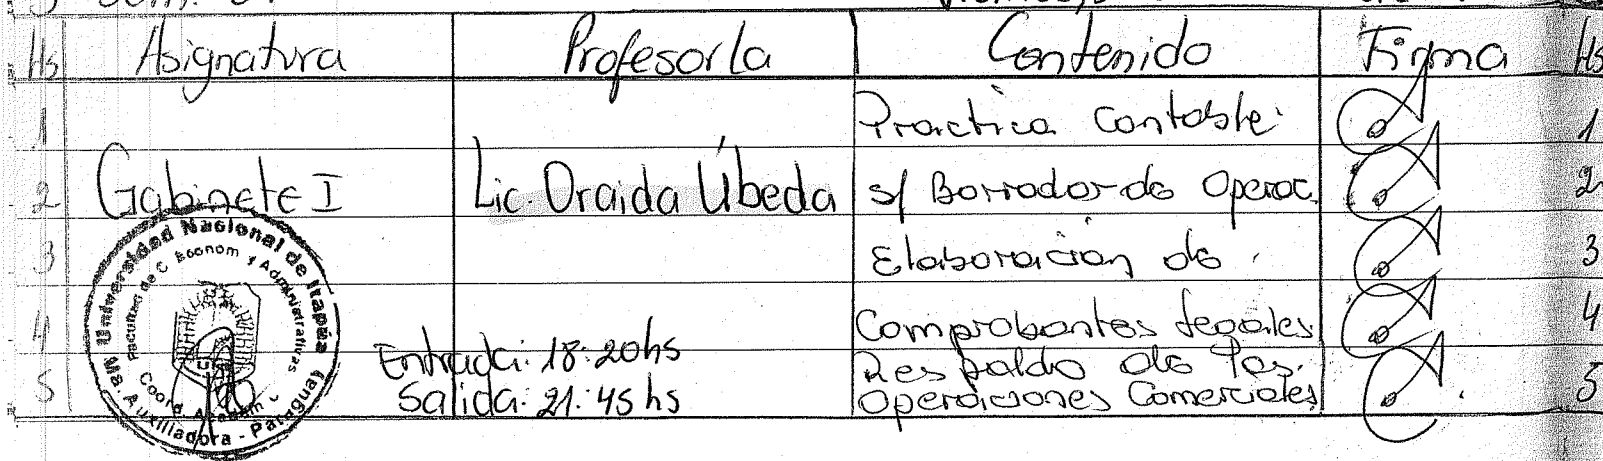 Hs Asignatura Profesor/a Contenido Firma Hs
1 Practica Contable 1
2 Gabinete I Lic. Oraida Úbeda s/ Borrador de Operac. 2
3 Elaboración de 3
4 Comprobantes legales 4
Entrada: 18:20hs Respaldo de las
5 Salida: 21:45hs Operaciones Comerciales 5
Universidad Nacional de Itapúa
Facultad de C. Econom y Administrativas
Coord. Academ
Ma. Auxiliadora - Paraguay